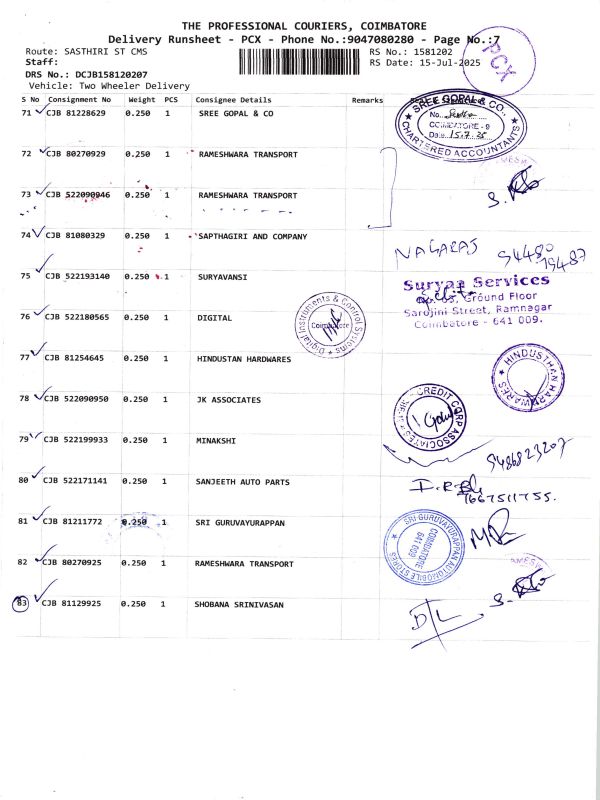 THE PROFESSIONAL COURIERS, COIMBATORE
Delivery Runsheet - PCX - Phone No.:9047080280 - Page No.:7
PCX
Route: SASTHIRI ST CMS RS No.: 1581202
Staff: RS Date: 15-Jul-2025
DRS No.: DCJB158120207
Vehicle: Two Wheeler Delivery
S No Consignment No Weight PCS Consignee Details Remarks
71 CJB 81228629 0.250 1 SREE GOPAL & CO
SREE GOPAL & CO.
No.
COIMBATORE - 9
Date 15.7.25
CHARTERED ACCOUNTANTS
72 CJB 80270929 0.250 1 RAMESHWARA TRANSPORT
73 CJB 522090946 0.250 1 RAMESHWARA TRANSPORT
74 CJB 81080329 0.250 1 SAPTHAGIRI AND COMPANY
NAGARAJ 94480
19487
75 CJB 522193140 0.250 1 SURYAVANSI
Suryaa Services
Ground Floor
Sarojini Street, Ramnagar
Coimbatore - 641 009.
76 CJB 522180565 0.250 1 DIGITAL
Digital Instruments & Control Systems
Coimbatore
77 CJB 81254645 0.250 1 HINDUSTAN HARDWARES
HINDUSTHAN HARDWARES
78 CJB 522090950 0.250 1 JK ASSOCIATES
CREDIT CORP ASSOCIATES
79 CJB 522199933 0.250 1 MINAKSHI
9486823207
80 CJB 522171141 0.250 1 SANJEETH AUTO PARTS
7667511755.
81 CJB 81211772 0.250 1 SRI GURUVAYURAPPAN
SRI GURUVAYURAPPAN AUTOMOBILE STORES
COIMBATORE
641 009
82 CJB 80270925 0.250 1 RAMESHWARA TRANSPORT
83 CJB 81129925 0.250 1 SHOBANA SRINIVASAN
D/L